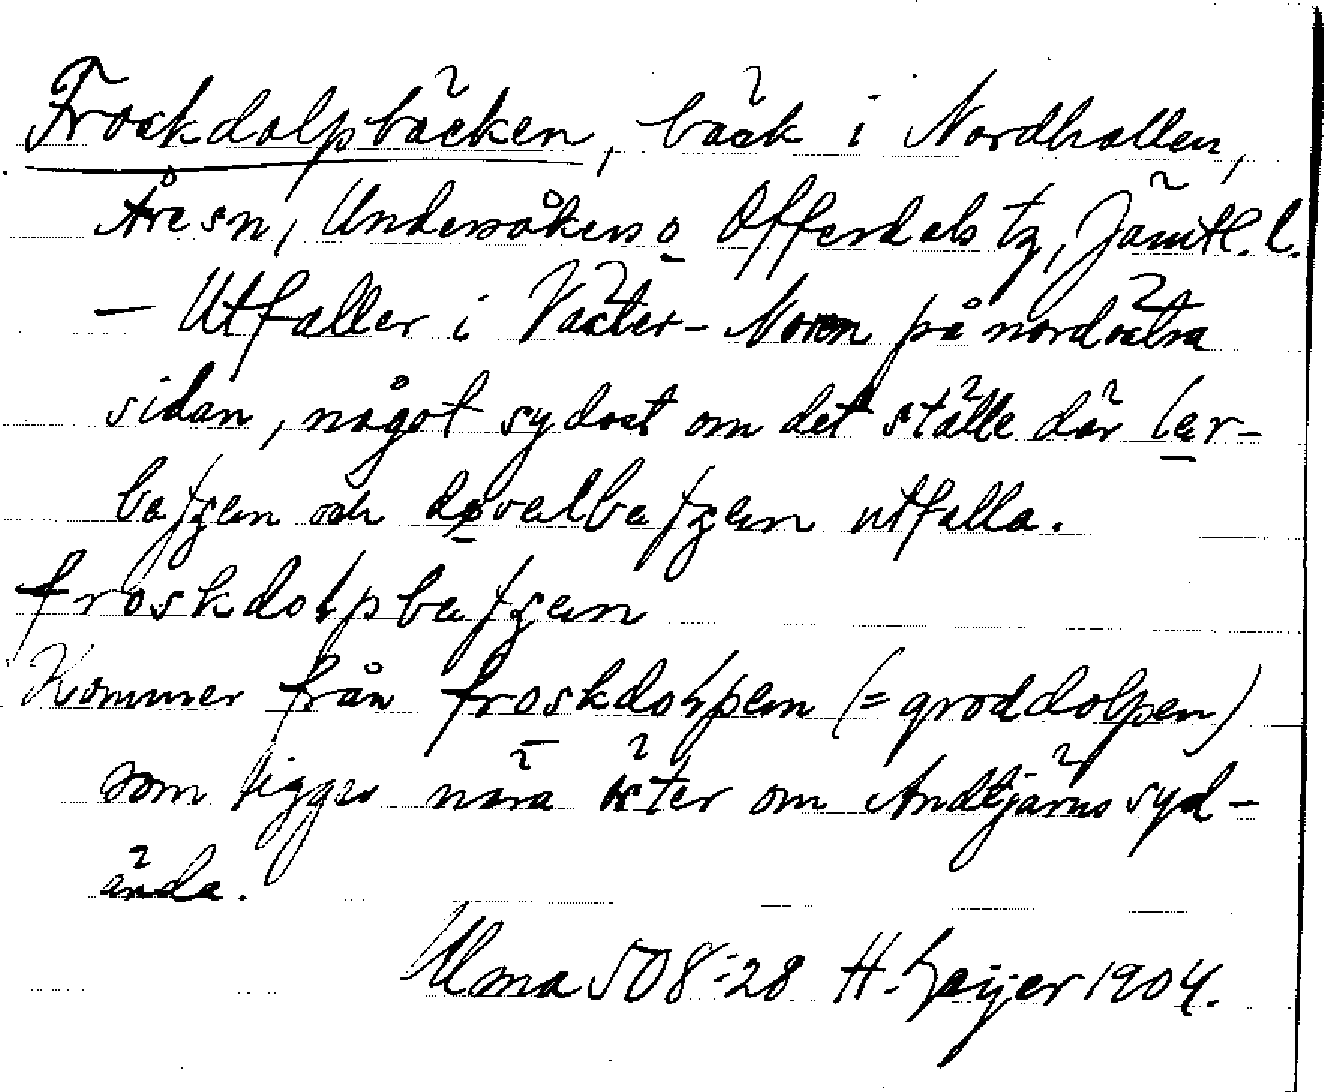 Froskdolpbäcken, bäck i Nordhallen,
Åre sn, Undersåkers o Offerdals tg, Jämtl. l.
– Utfaller i Väster-Noren på nordvästra
sidan, något sydost om det ställe där ler-
baʃʒen och devalbaʃʒen utfalla.
froskdolpbaʃʒen
Kommer från froskdolpen (= groddolpen)
som ligger nära öster om Andtjärns syd-
ända.
Ulma 508:28 H. Geijer 1904.